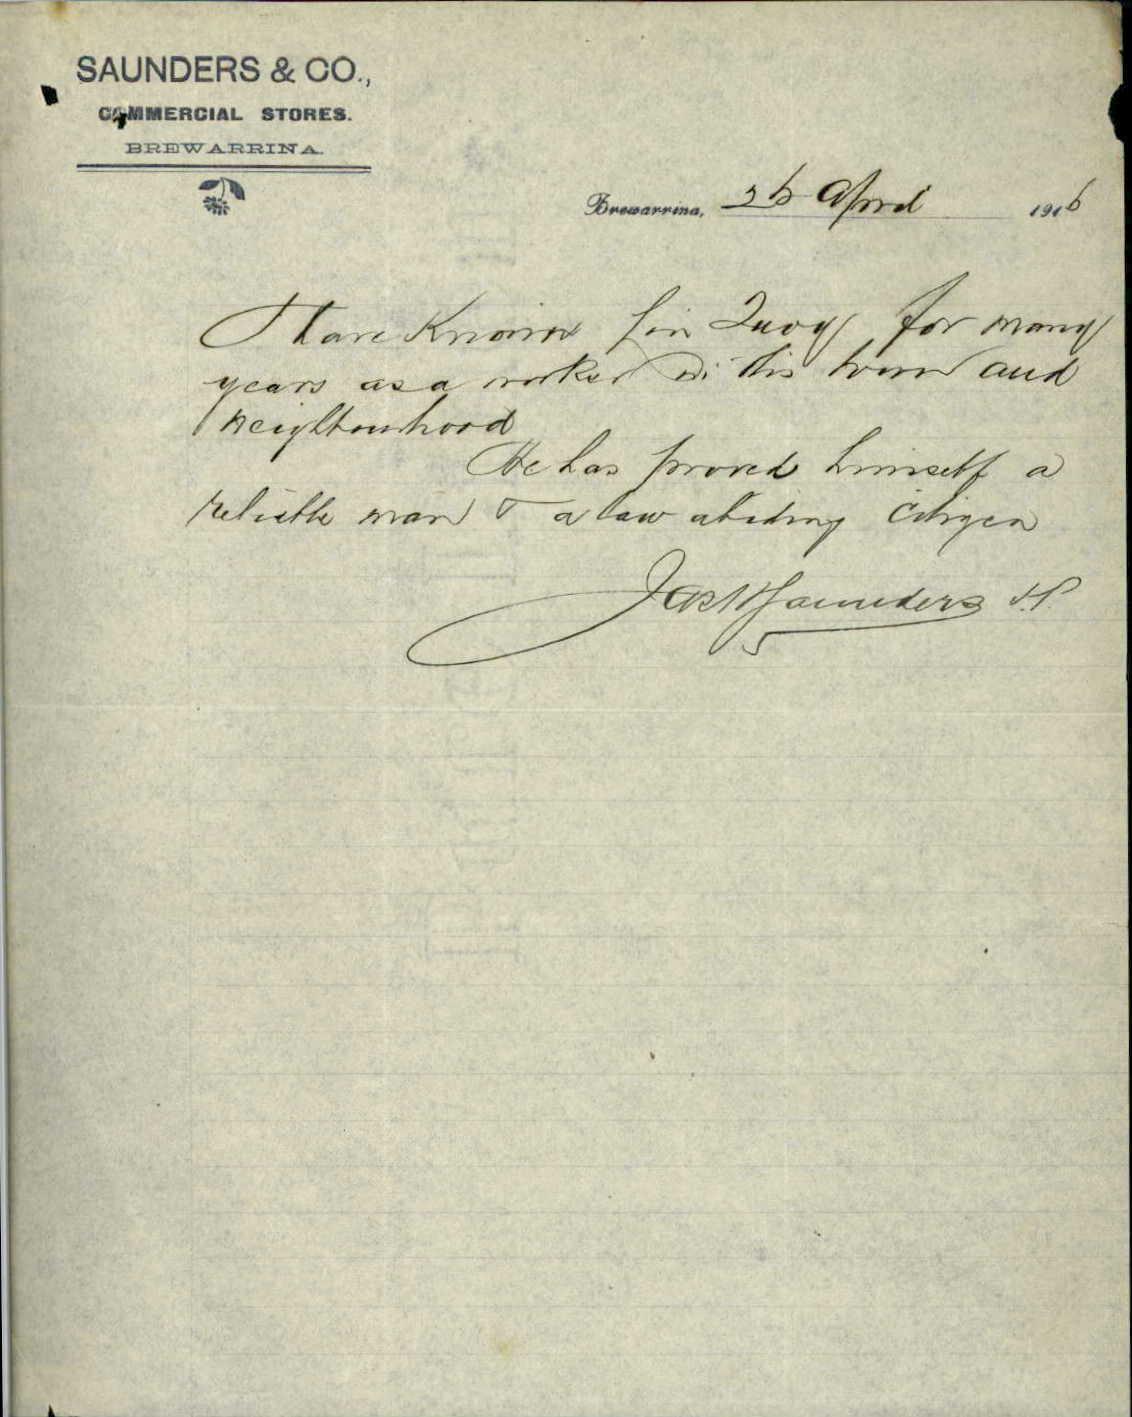 SAUNDERS & CO.,
COMMERCIAL STORES.
BREWARRINA.
Brewarrina, 26 April 1916
I have Known for many
years as a worker in this town and
neighbourhood
He has proved himself a
reliable man & a law abiding Citizen
Jas W Saunders J.P.